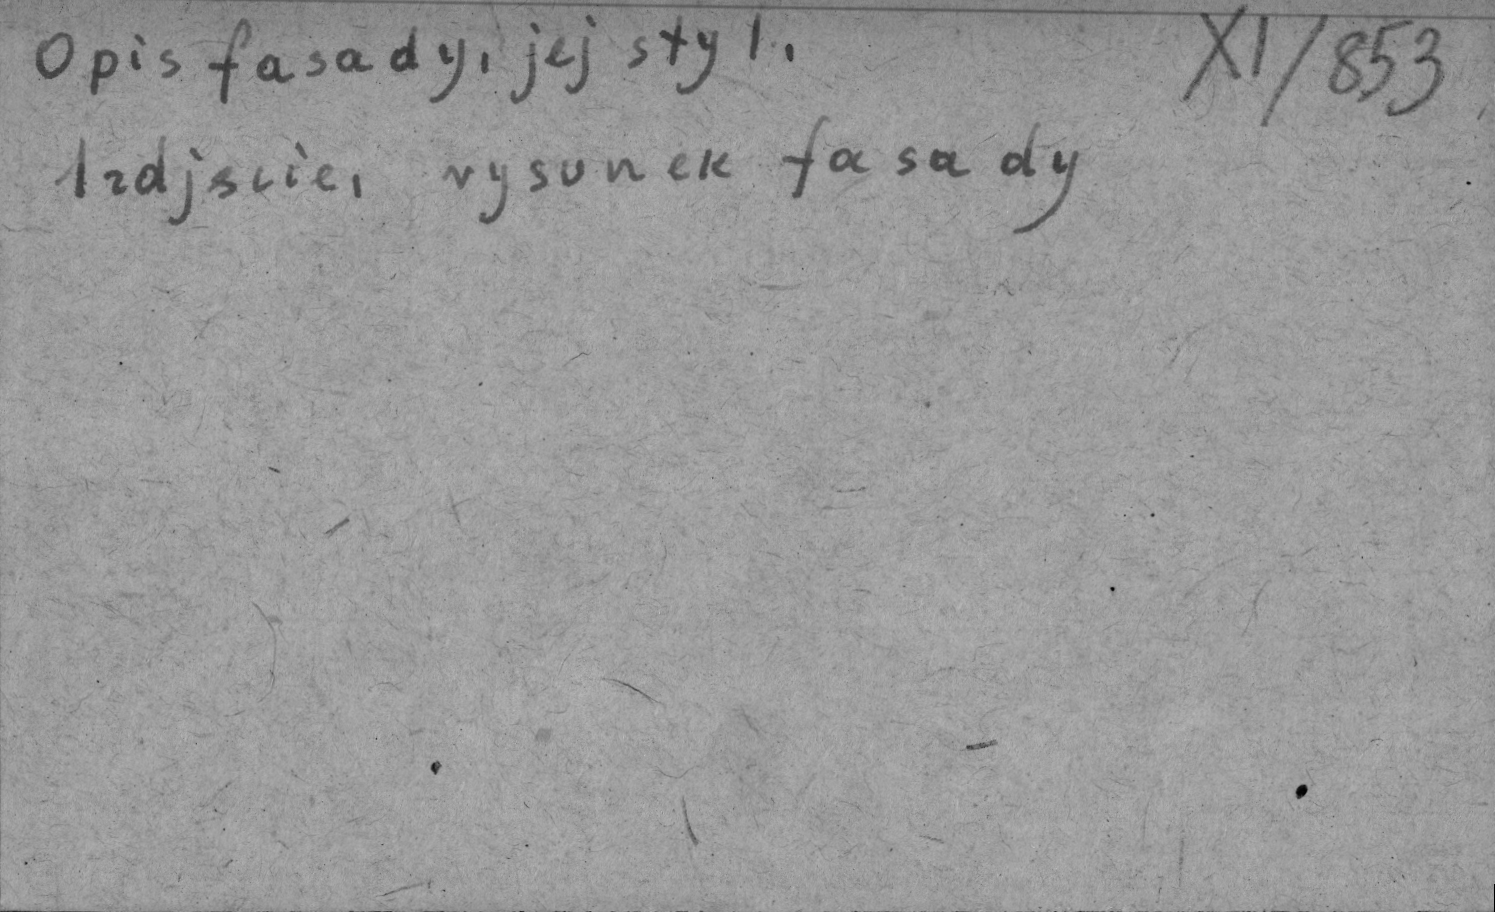 Opis fasady, jej styl, XI/853
1 zdjście, rysunek fasady